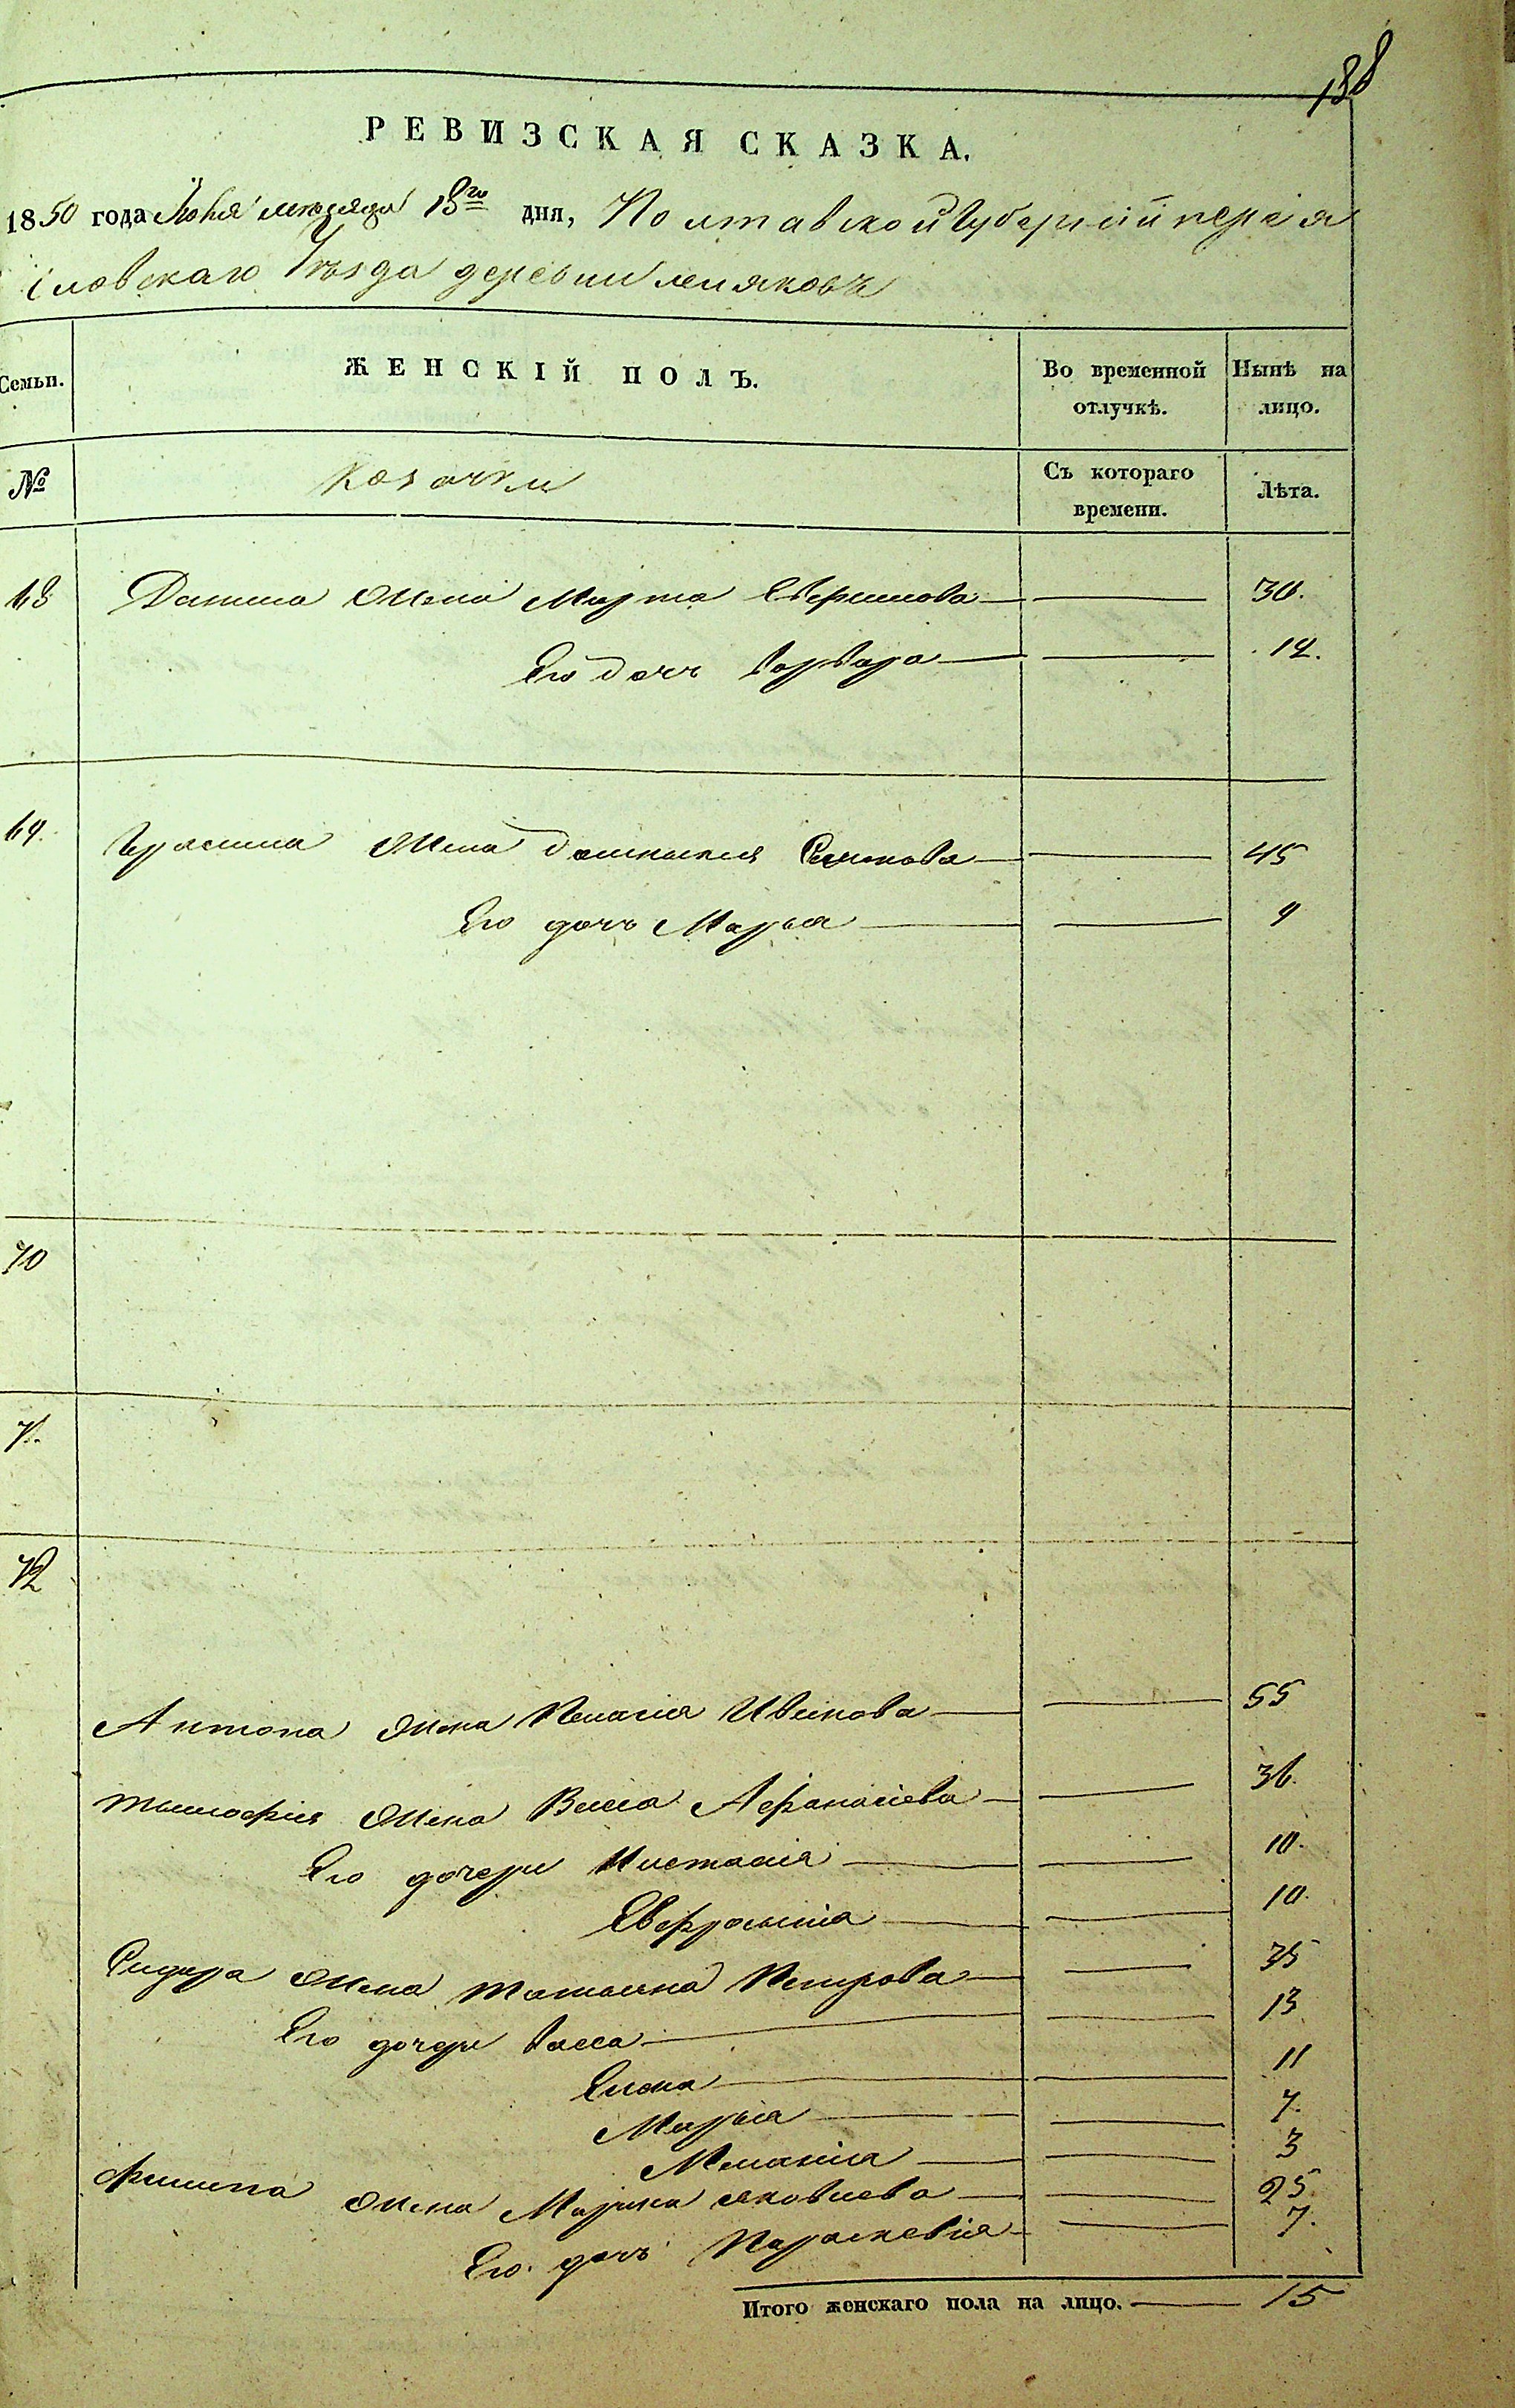 138
РЕВИЗСКАЯ СКАЗКА.
1850 года Июня месяца 18го дня, Полтавской Губернии перея
словскаго Уезда деревни
Семьи. ЖЕНСКІЙ ПОЛЪ. Во временной отлучкѣ. Нынѣ на лицо.
№ козачки Съ котораго времени. Лѣта.
68 жена Марта 30.
Его дочь Варвара 12.
69. Герасима жена Домникия Семенова 45
Его дочь Марья 9
70
71.
72
Антона жена Пелагия Иванова 55
Тимофея жена Васса Афанасиева 36.
Его дочери Анастасия 10.
Евфросиния 10.
Сидора жена Татьяна Петрова 35
Его дочери Васса 13
Елена 11
Марья 7.
Мелания 3
Филипа жена Марина яковлева 25
Его дочь Параскевия 7.
Итого женскаго пола на лицо. 15